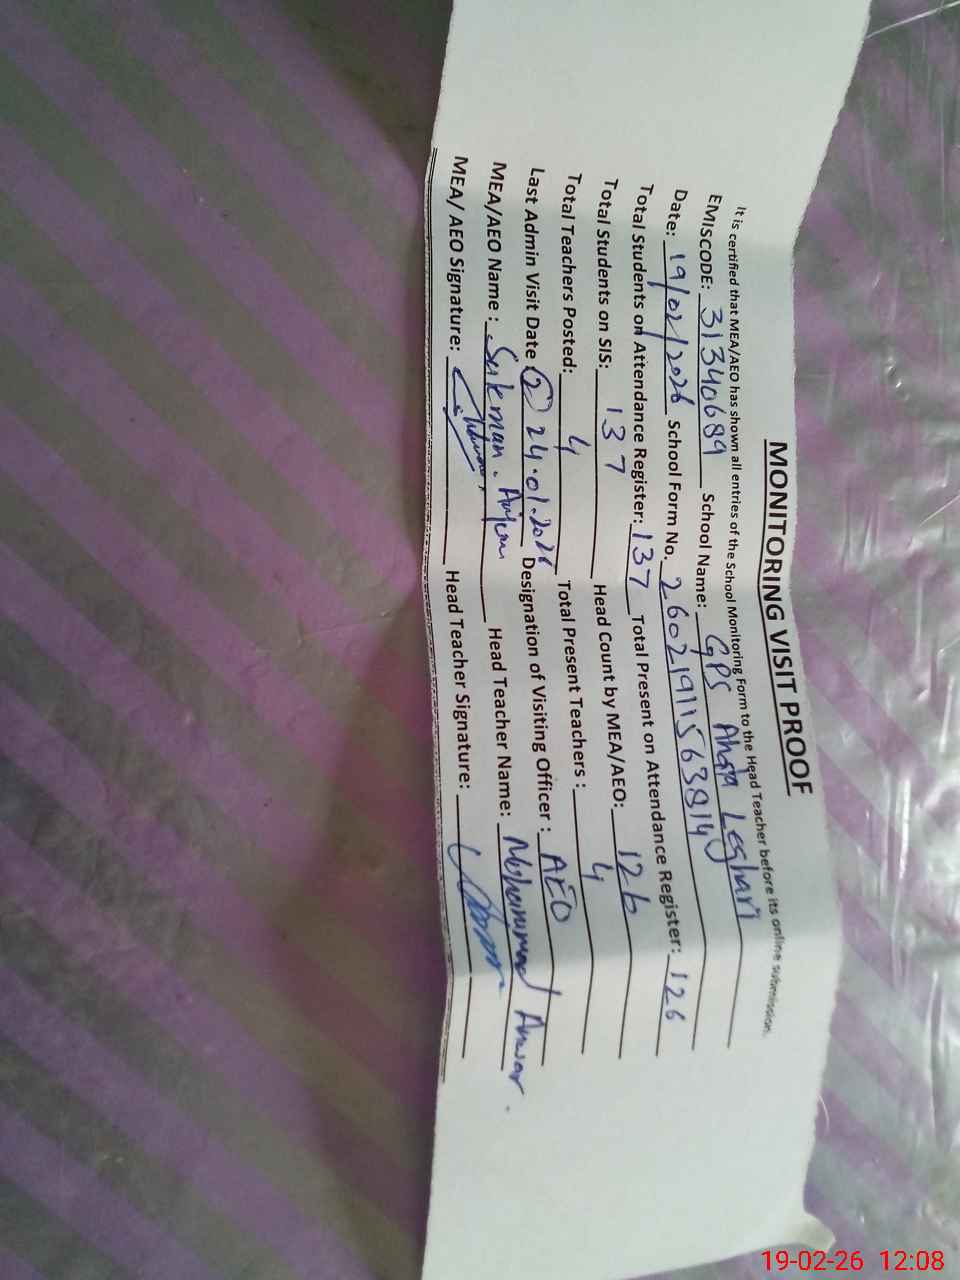 MONITORING VISIT PROOF
It is certified that MEA/AEO has shown all entries of the School Monitoring Form to the Head Teacher before its online submission.
EMISCODE: 31340689 School Name: GPS Ahata Leghari
Date: 19/02/2026 School Form No. 260219115638140
Total Students on Attendance Register: 137 Total Present on Attendance Register: 126
Total Students on SIS: 137 Head Count by MEA/AEO: 126
Total Teachers Posted: 4 Total Present Teachers : 4
Last Admin Visit Date (2) 24.01.2026 Designation of Visiting Officer : AEO
MEA/AEO Name : Anjum Head Teacher Name: Muhammad Anwar.
MEA/ AEO Signature: Head Teacher Signature:
19-02-26 12:08